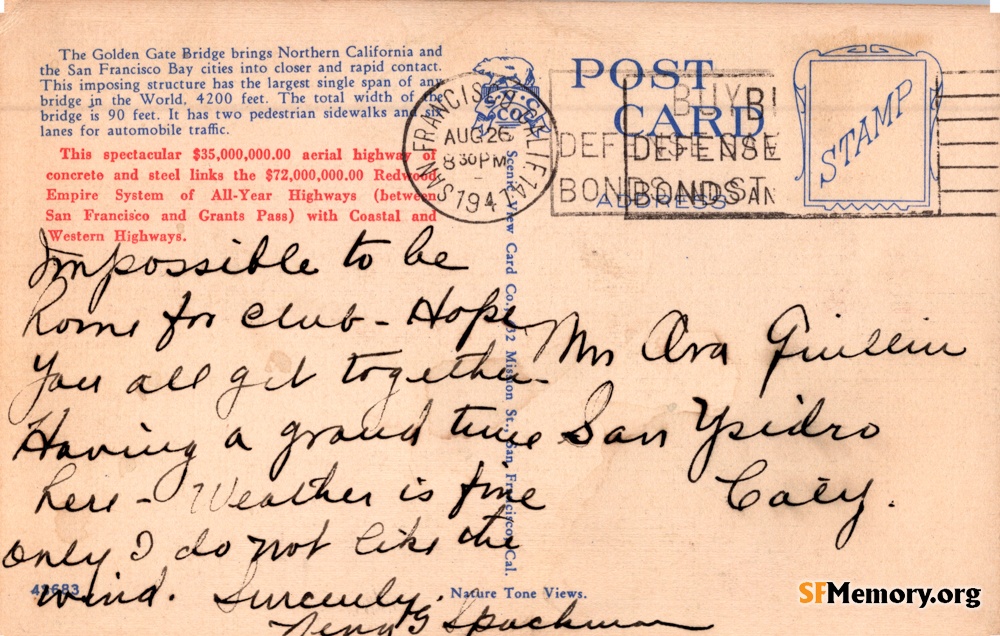 The Golden Gate Bridge brings Northern California and
the San Francisco Bay cities into closer and rapid contact.
This imposing structure has the largest single span of any
bridge in the World, 4200 feet. The total width of the
bridge is 90 feet. It has two pedestrian sidewalks and six
lanes for automobile traffic.
This spectacular $35,000,000.00 aerial highway of
concrete and steel links the $72,000,000.00 Redwood
Empire System of All-Year Highways (between
San Francisco and Grants Pass) with Coastal and
Western Highways.
Impossible to be
home for club - Hope
You all get together -
Having a grand time
here - Weather is fine
only I do not like the
wind. Sincerely,
Spackman
43683
Nature Tone Views.
Scenic View Card Co. Mission St., San Francisco, Cal.
POST
CARD
ADDRESS
STAMP
SAN FRANCISCO, CALIF. 14
AUG 26
8 30 PM
1947
BUY
DEFENSE
BONDS AND ST
BUY
DEFENSE
BONDS AN
Mrs Ora
San Ysidro
Caly.
SFMemory.org